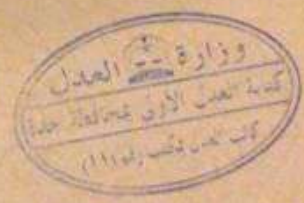 وزارة العدل
كتابة العدل الأولى بمحافظة جدة
كاتب العدل مكتب رقم (١١١)